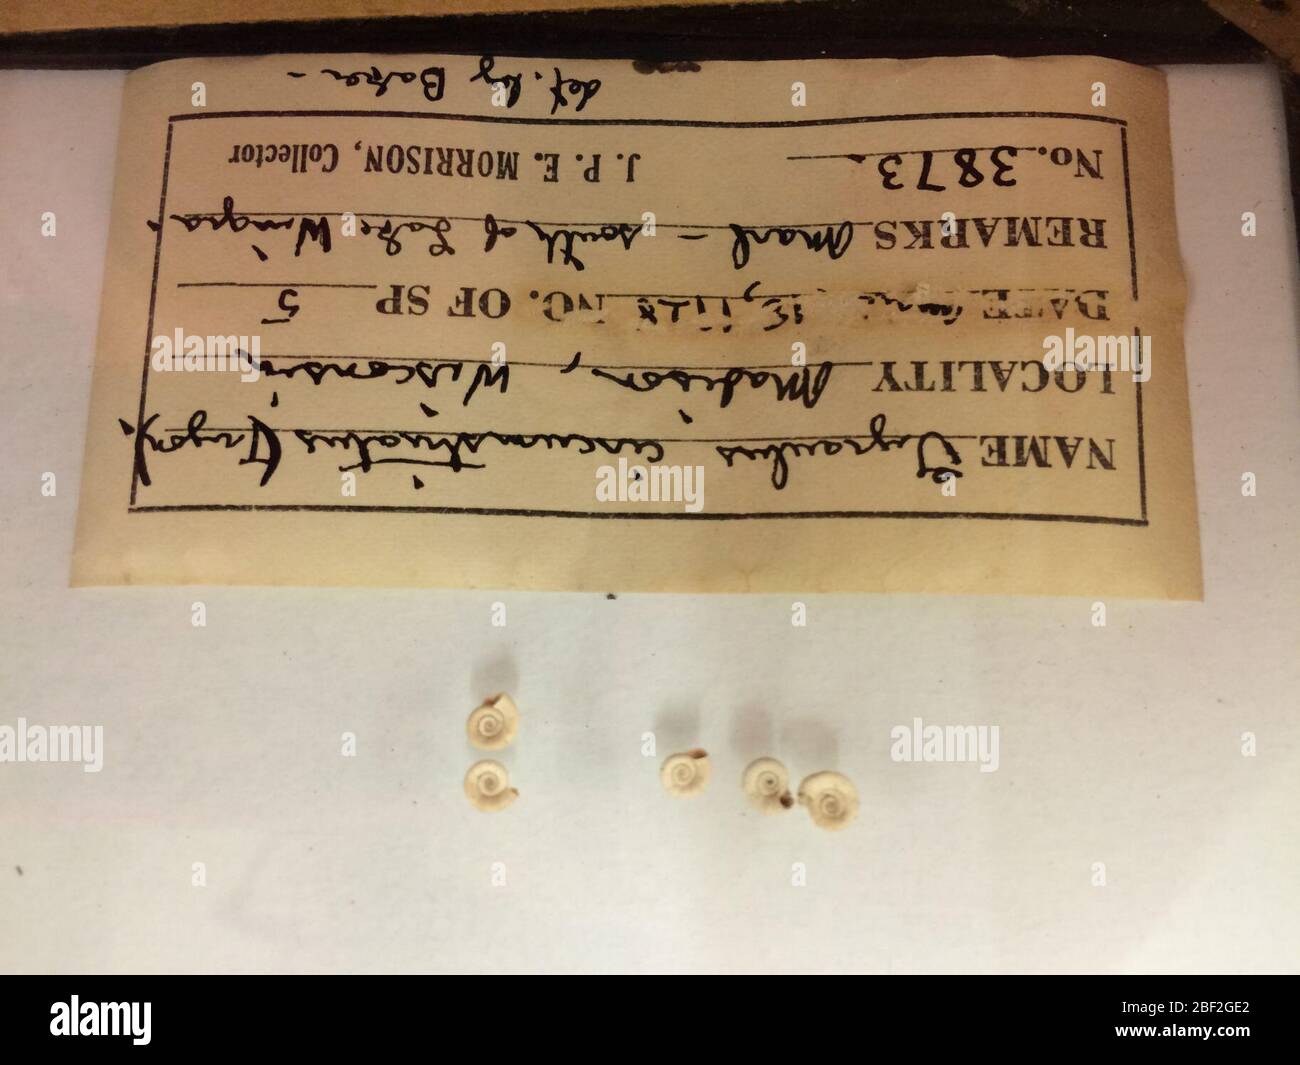 NAME Gyraulus circumstriatus (Tryon).
LOCALITY Madison, Wisconsin
DATE 15, NO. OF SP 5
REMARKS Marl - south of Lake Wingra.
No. 3873. J. P. E. MORRISON, Collector
det. by Baker -
alamy
Image ID: 2BF2GE2
www.alamy.com